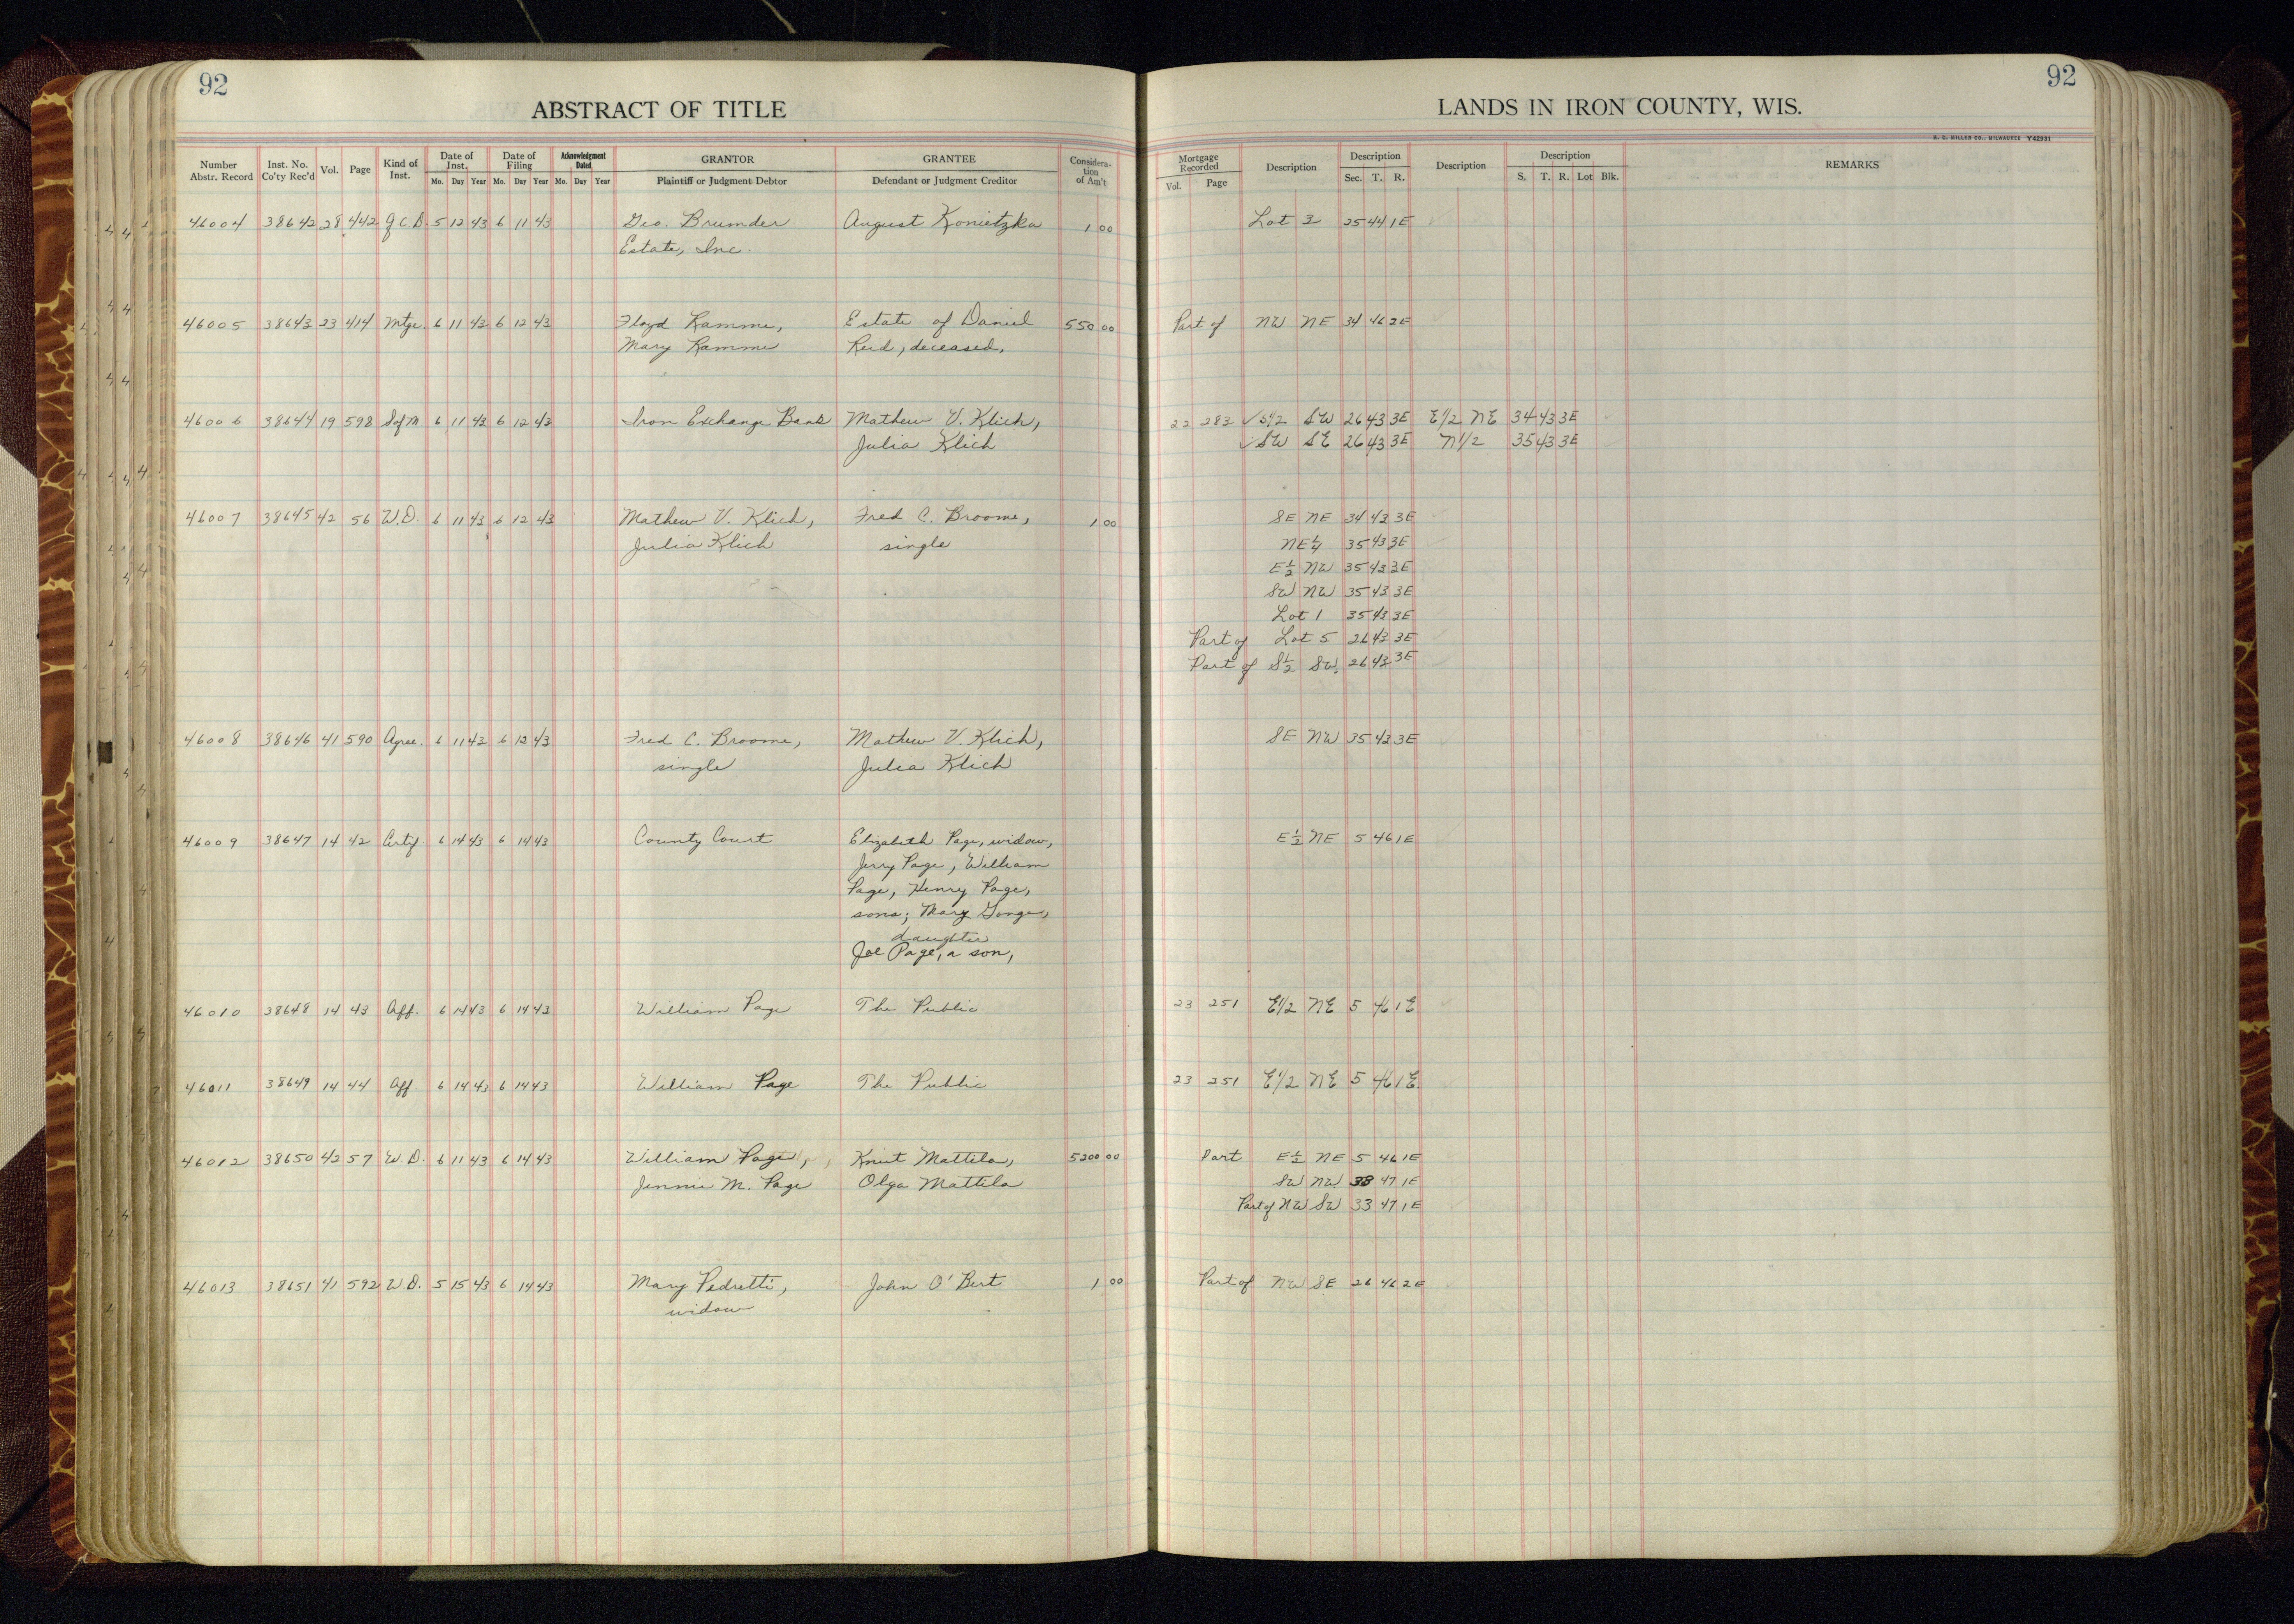 92
ABSTRACT OF TITLE
Number Abstr. Record Inst. No. Co'ty Rec'd Vol. Page Kind of Inst. Date of Inst. Mo. Day Year Date of Filing Mo. Day Year Acknowledgment Dated Mo. Day Year GRANTOR Plaintiff or Judgment Debtor GRANTEE Defendant or Judgment Creditor Considera-tion of Am't
92
LANDS IN IRON COUNTY, WIS.
H. C. MILLER CO., MILWAUKEE Y42931
Mortgage Recorded Vol. Page Description Description Sec. T. R. Description Description S. T. R. Lot Blk. REMARKS
46004 38642 28 442 Q.C.D. 5 12 43 6 11 43 Geo. Brumder August Konietzka 1 00 Lot 3 25 44 1E
Estate, Inc.
46005 38643 23 414 Mtge. 6 11 43 6 12 43 Floyd Ramme, Estate of Daniel 550 00 Part of NW NE 34 46 2E
Mary Ramme Reid, deceased,
46006 38644 19 598 Sof M 6 11 43 6 12 43 Iron Exchange Bank Mathew V. Klich, 22 283 ✓ S1/2 SW 26 43 3E E1/2 NE 34 43 3E
Julia Klich ✓ SW SE 26 43 3E N1/2 35 43 3E
46007 38645 42 56 W.D. 6 11 43 6 12 43 Mathew V. Klich, Fred C. Broome, 1 00 SE NE 34 43 3E
Julia Klich single NE¼ 35 43 3E
E½ NW 35 43 3E
SW NW 35 43 3E
Lot 1 35 43 3E
Part of Lot 5 26 43 3E
Part of S½ SW. 26 43 3E
46008 38646 41 590 Agree. 6 11 43 6 12 43 Fred C. Broome, Mathew V. Klich, SE NW 35 43 3E
single Julia Klich
46009 38647 14 42 Certif 6 14 43 6 14 43 County Court Elizabeth Page, widow, E½ NE 5 46 1E
Jerry Page, William
Page, Henry Page,
sons; Mary Gonge,
daughter
Joe Page, a son,
46010 38648 14 43 Aff. 6 14 43 6 14 43 William Page The Public 23 251 E1/2 NE 5 46 1E
46011 38649 14 44 Aff 6 14 43 6 14 43 William Page The Public 23 251 E1/2 NE 5 46 1E.
46012 38650 42 57 W.D. 6 11 43 6 14 43 William Page, Knut Mattila, 5200 00 Part E½ NE 5 46 1E
Jennie M. Page Olga Mattila SW NW 33 47 1E
Part of NW SW 33 47 1E
46013 38651 41 592 W.D. 5 15 43 6 14 43 Mary Pedretti, John O'Bert 1 00 Part of NW SE 26 46 2E
widow